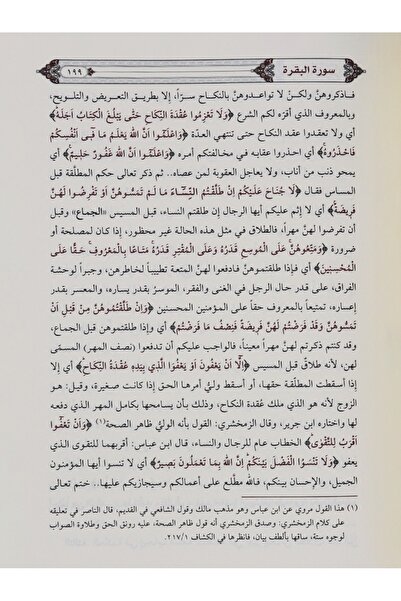 سورة البقرة
١٩٩
فاذكروهنَّ ولكنْ لا تواعدوهنَّ بالنكاح سرّاً، إلا بطريق التعريض والتلويح،
وبالمعروف الذي أقرّه لكم الشرع ﴿وَلَا تَعْزِمُوا عُقْدَةَ النِّكَاحِ حَتَّى يَبْلُغَ الْكِتَابُ أَجَلَهُ﴾
أي ولا تعقدوا عقد النكاح حتى تنتهي العدّة ﴿وَاعْلَمُوا أَنَّ اللهَ يَعْلَمُ مَا فِي أَنْفُسِكُمْ
فَاحْذَرُوهُ﴾ أي احذروا عقابه في مخالفتكم أمره ﴿وَاعْلَمُوا أَنَّ اللهَ غَفُورٌ حَلِيمٌ﴾ أي
يمحو ذنب من أناب، ولا يعاجل العقوبة لمن عصاه.. ثم ذكر تعالى حكم المطلَّقة قبل
المساس فقال ﴿لَا جُنَاحَ عَلَيْكُمْ إِنْ طَلَّقْتُمُ النِّسَاءَ مَا لَمْ تَمَسُّوهُنَّ أَوْ تَفْرِضُوا لَهُنَّ
فَرِيضَةً﴾ أي لا إثم عليكم أيها الرجال إن طلقتم النساء، قبل المسيس «الجماع» وقبل
أن تفرضوا لهنَّ مهراً، فالطلاق في مثل هذه الحالة غير محظور، إذا كان لمصلحة أو
ضرورة ﴿وَمَتِّعُوهُنَّ عَلَى الْمُوسِعِ قَدَرُهُ وَعَلَى الْمُقْتِرِ قَدَرُهُ مَتَاعًا بِالْمَعْرُوفِ حَقًّا عَلَى
الْمُحْسِنِينَ﴾ أي فإذا طلقتموهنَّ فادفعوا لهنَّ المتعة تطييباً لخاطرهن، وجبراً لوحشة
الفراق، على قدر حال الرجل في الغنى والفقر، الموسرُ بقدر يساره، والمعسر بقدر
إعساره، تمتيعاً بالمعروف حقاً على المؤمنين المحسنين ﴿وَإِنْ طَلَّقْتُمُوهُنَّ مِنْ قَبْلِ أَنْ
تَمَسُّوهُنَّ وَقَدْ فَرَضْتُمْ لَهُنَّ فَرِيضَةً فَنِصْفُ مَا فَرَضْتُمْ﴾ أي وإذا طلقتموهن قبل الجماع،
وقد كنتم ذكرتم لهنَّ مهراً معيناً، فالواجب عليكم أن تدفعوا (نصف المهر) المسمَّى
لهن، لأنه طلاقٌ قبل المسيس ﴿إِلَّا أَنْ يَعْفُونَ أَوْ يَعْفُوَ الَّذِي بِيَدِهِ عُقْدَةُ النِّكَاحِ﴾ أي إلا
إذا أسقطت المطلَّقة حقها، أو أسقط وليُّ أمرها الحق إذا كانت صغيرة، وقيل: هو
الزوج لأنه هو الذي ملك عُقدة النكاح، وذلك بأن يسامحها بكامل المهر الذي دفعه
لها واختاره ابن جرير، وقال الزمخشري: القول بأنه الوليُّ ظاهر الصحة(١) ﴿وَأَنْ تَعْفُوا
أَقْرَبُ لِلتَّقْوَى﴾ الخطاب عام للرجال والنساء، قال ابن عباس: أقربهما للتقوى الذي
يعفو ﴿وَلَا تَنْسَوُا الْفَضْلَ بَيْنَكُمْ إِنَّ اللهَ بِمَا تَعْمَلُونَ بَصِيرٌ﴾ أي لا تنسوا أيها المؤمنون
الجميل، والإحسان بينكم، فالله مطَّلع على أعمالكم وسيجازيكم عليها.. ختم تعالى
(١) هذا القول مروي عن ابن عباس وهو مذهب مالك وقول الشافعي في القديم، قال الناصر في تعليقه
على كلام الزمخشري: وصدق الزمخشري أنه قول ظاهر الصحة، عليه رونق الحق وطلاوة الصواب
لوجوه ستة، ساقها بألطف بيان، فانظرها في الكشاف ٢١٧/١.